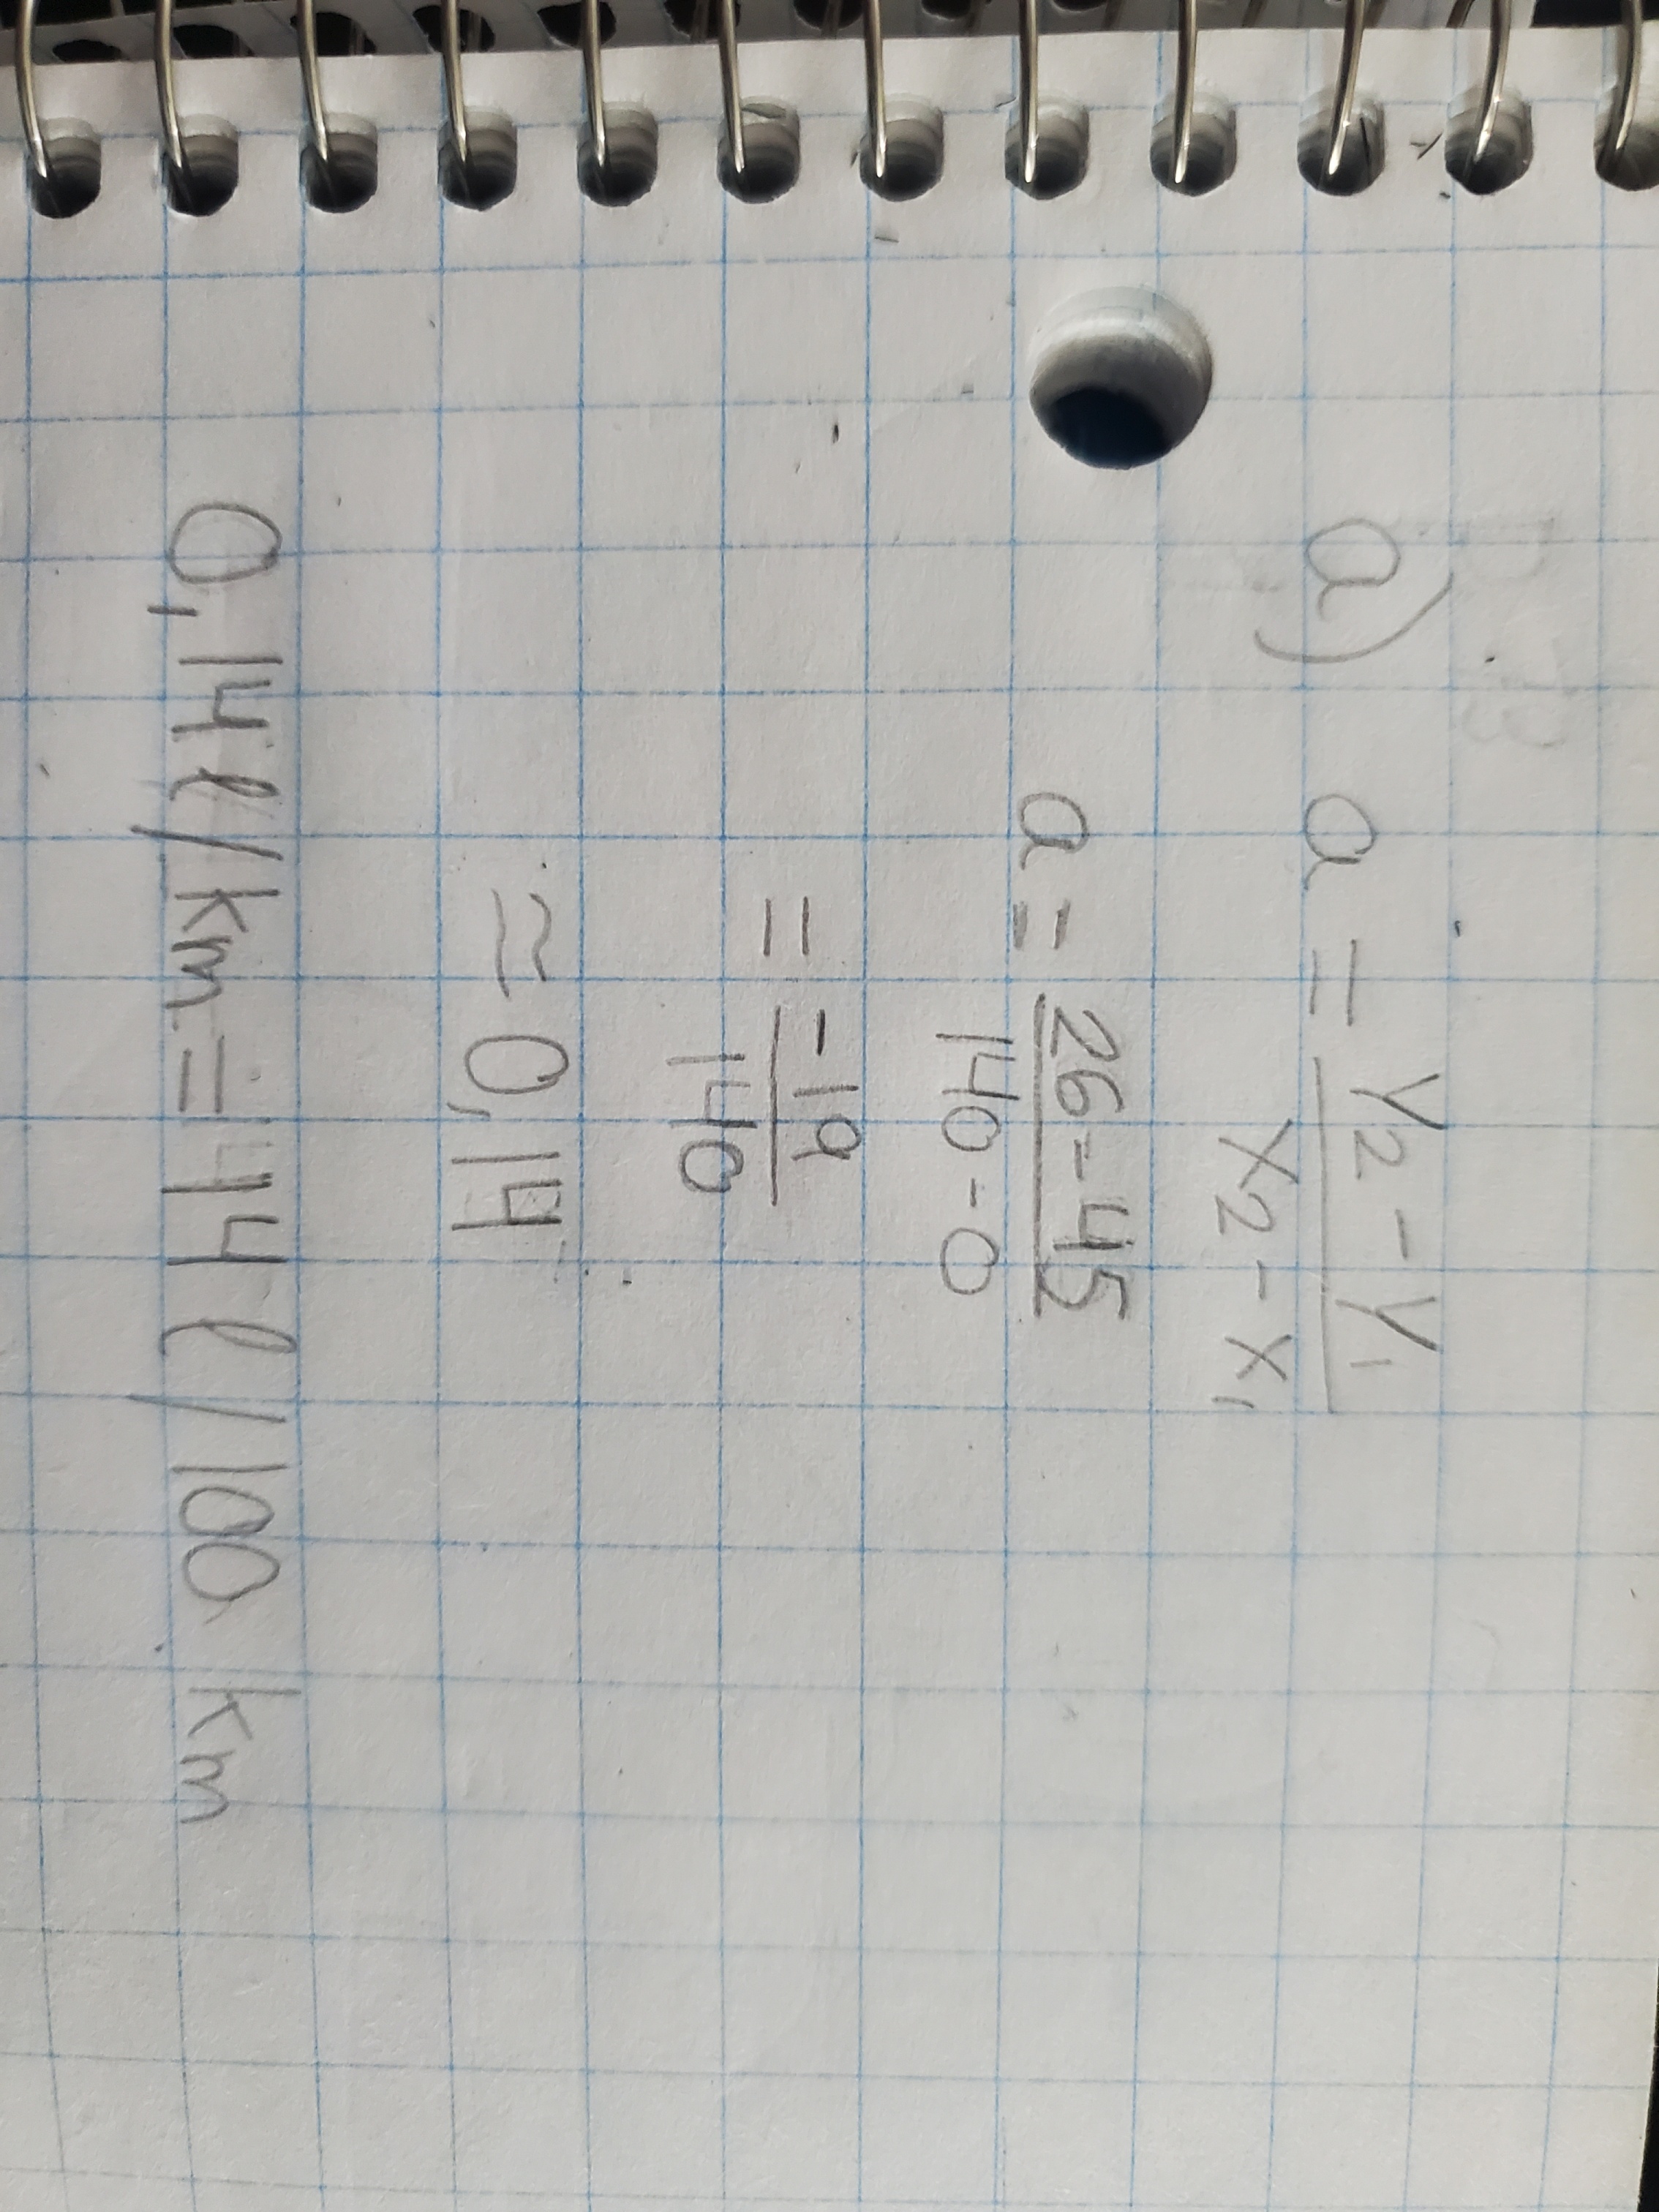 a) a = y₂ - y₁
x₂ - x₁
a = 26 - 45
140 - 0
= -19
140
≈ 0,14
0,14 ℓ/km = 14 ℓ/100 km